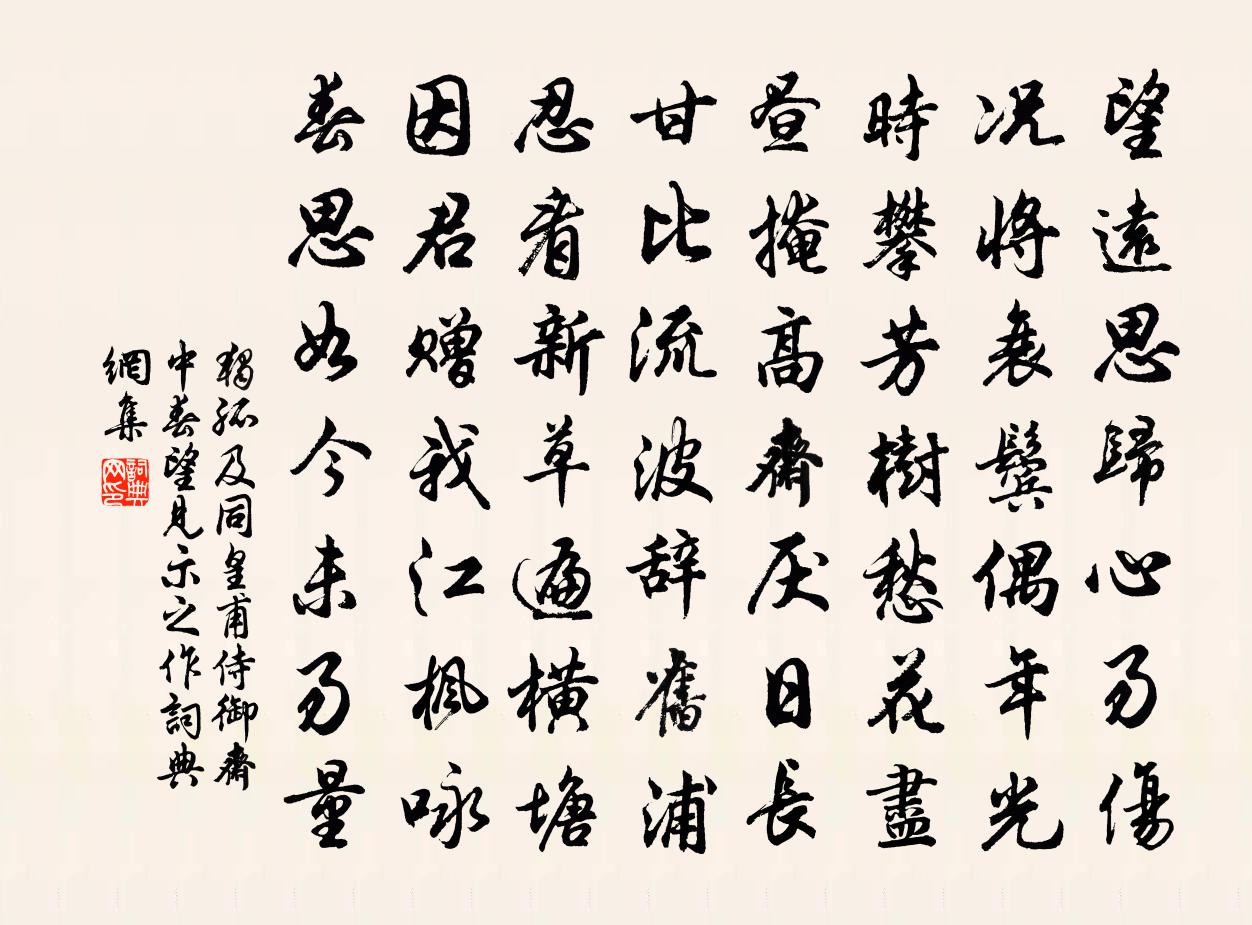 望遠思歸心易傷
况將衰鬢偶年光
時攀芳樹愁花盡
晝掩高齋厌日長
甘比流波辞舊浦
忍看新草遍橫塘
因君赠我江楓咏
春思如今未易量
獨孤及同皇甫侍御齋
中春望見示之作詞典
網集
詞典网印